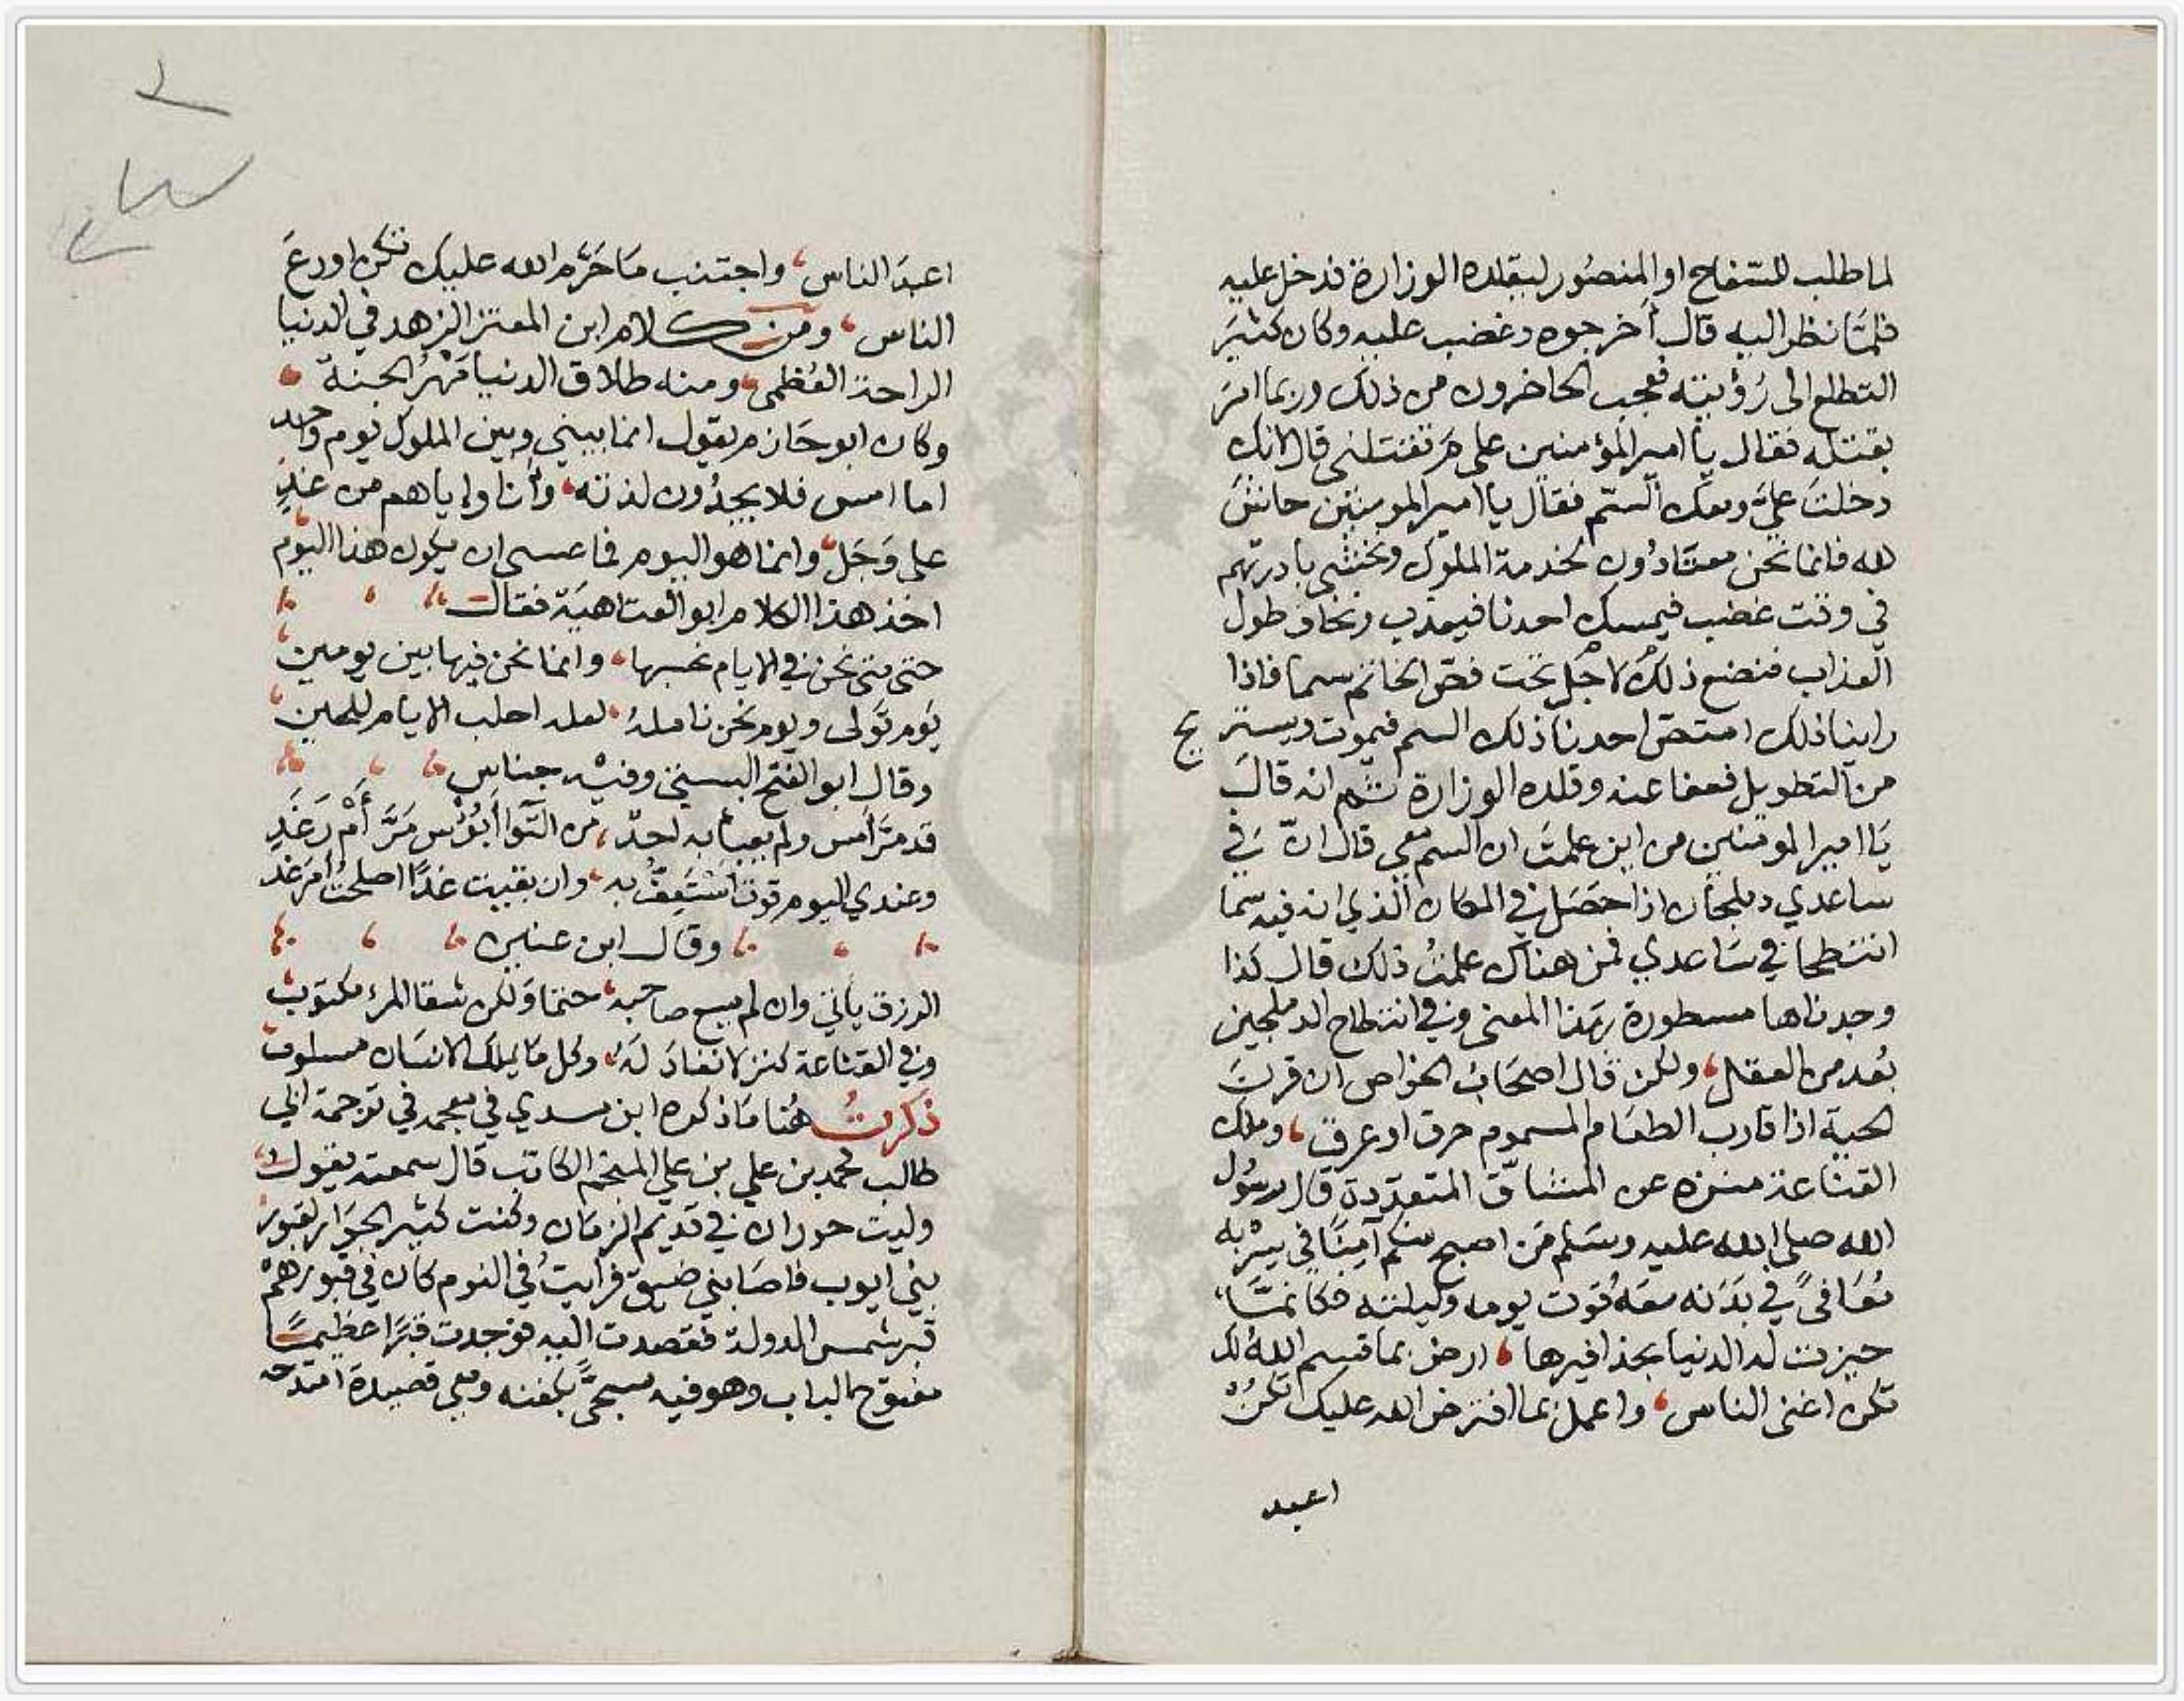 لما طلب للسفاح او المنصور ليقلده الوزارة فدخل عليه
فلمّا نظر اليه قال أخرجوه وغضب عليه وكان كثير
التطلع الى رُؤيته فعجب الحاضرون من ذلك وربما امر
بقتله فقال يا امير المؤمنين على مَ تقتلني قال لانك
دخلت عليّ ومعك السّم فقال يا امير المومنين حاشَ
لله فانما نحن معتادُون لخدمة الملوك ونخشى بادرتهم
في وقت غضب فيمسك احدنا فيعذب ونخاف طول
العذاب فنضع ذلك لاجل تحت فصّ الخاتم سما فاذا
راينا ذلك امتصّ احدنا ذلك السم فيموت ويستريح
من التطويل فعفا عنه وقلده الوزارة ثم انه قال
يَا امير المومنين من اين علمتَ ان السم معي قال انّ في
ساعدي دملجان اذا حصَل في المكان الذي انه فيه سّما
انتطحا في سَاعدي فمن هناك علمتُ ذلك قال كذا
وجدناها مسطورة بهَذا المعنى وفي انتطاح الدملجين
بُعد من العقل، ولكن قال اصحَابُ الخواص ان قرنَ
الحية اذا قارب الطعَام المسموم حرق او عرق، وملك
القناعة منزه عن المشاقّ المتعدّدة قال رسُول
الله صلى الله عليه وسَلم مَن اصبح منكم آمِنًا في سِرْبه
مُعَافىً في بَدَنه معَهُ قُوت يومه وليلته فكانمّا،
حيزت له الدنيا بحذافيرها، ارض بما قسم اللهُ لك
تكن اغنى الناس، واعمل بما افترض الله عليك تكنْ
اعبد
اعبدَ الناس، واجتنب مَا حَرَّم الله عليك تكن اورعَ
الناس، ومن كلام ابن المعتز الزهد في الدنيا
الراحة العُظمى، ومنه طلاق الدنيا مَهْرُ الجنة
وكان ابو حَازم يقول انما بيني وبين الملوك يوم واحد
اما امس فلا يجدُون لذته، وأنا واياهم من غدٍ
على وَجَل، وانما هو اليوم فما عسى ان يكون هذا اليوم
اخذ هذا الكلام ابو العتاهيَة فقال
حتى متى نحن في الايام نحسبها، وانما نحن فيها بين يومين
يَوم تَولى ويوم نحن ناملهُ، لعله احلب الايام للحين
وقال ابو الفتح البستي وفيه جناس
قد مَرّ امس ولم يعبأ به احدٌ، من التّوا أبُؤْس مَرَّ أَمْ رَغَدِ
وعندي اليوم قوتٌ اَستَعِفُّ به، وان بقيت غدًا اصلحتُ أمرَ غد
وقال ابن عنين
الرزق ياتي وان لم يسع صاحبه، حتما وَلكن شقا المرء مكتوبُ
وفي القناعة كنز لا نفادَ لَهُ، وكل مَا يملك الانسَان مسلوب
ذكرتُ هُنا مَا ذكره ابن مسدي في معجمه في ترجمة ابي
طالب محمد بن علي بن علي المنجم الكاتب قال سمعته يقول
وليت حوران في قديم الزمَان وكنت كثير الجوَار لقبور
بني ايوب فاصَابني ضيقٌ فرايتُ في النوم كان في قبورهمْ
قبر شمس الدولة فقصدت اليه فوجدت قبرًا عظيمًا
مفتوح الباب وهو فيه مسجًّى بكفنه ومعي قصيدة امتدحه